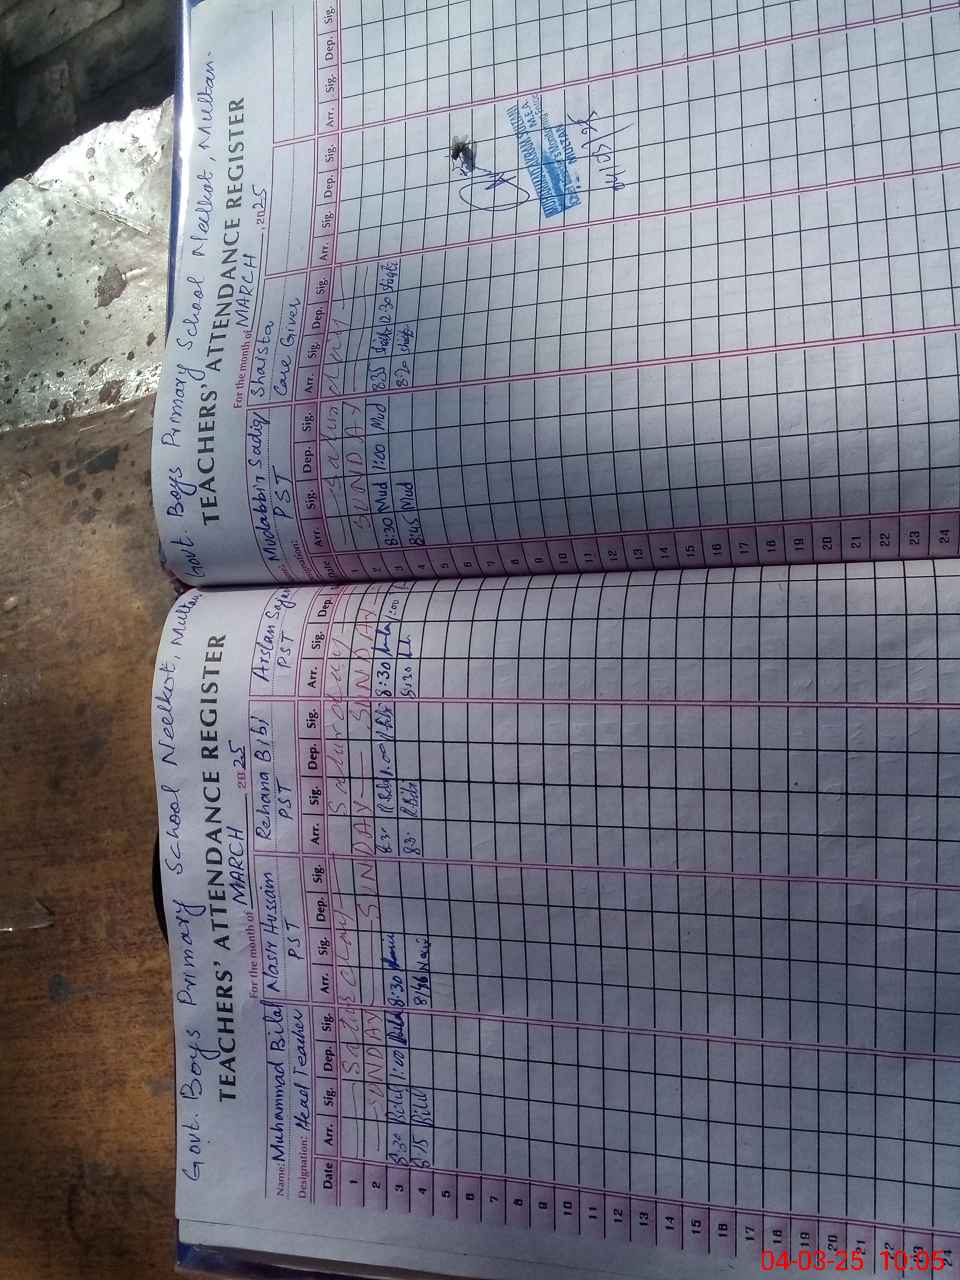 Govt. Boys Primary School Neelkot, Multan
TEACHERS' ATTENDANCE REGISTER
For the month of MARCH, 2025
Name: Muhammad Bilal Nasir Hussain Rehana Bibi Arslan
Designation: Head Teacher PST PST PST
Date Arr. Sig. Dep. Sig. Arr. Sig. Dep. Sig. Arr. Sig. Dep. Sig. Arr. Sig. Dep.
1 Saturday
2 SUNDAY SUNDAY SUNDAY
3 8:30 Bilal 1:00 8:30 8:30 R Bibi 1:00 R Bibi 8:30 1:00
4 8:15 Bilal R Bibi 8:30
5
6
7
8
9
10
11
12
13
14
15
16
17
18
19
20
21
22
23
24
Govt. Boys Primary School Neelkot, Multan.
TEACHERS' ATTENDANCE REGISTER
For the month of MARCH, 2025
Mudabbir Sadiq Shaista
PST Care Giver
Date Arr. Sig. Dep. Sig. Arr. Sig. Dep. Sig. Arr. Sig. Dep. Sig. Arr. Sig. Dep. Sig.
1 Saturday
2 SUNDAY
3 8:30 Mud 1:00 Mud 8:35 12:30
4 8:45 Mud
5
6
7
8
9
10
11
12
13
14
15
16
17
18
19
20
21
22
23
24
MULTAN
04/03/25
04-03-25 10:05